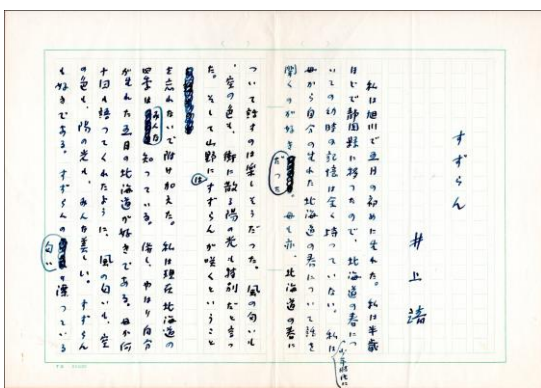 すずらん
井上靖
私は旭川で五月の初めに生れた。私は半歳
ほどで静岡県に移ったので、北海道の春につ
いての幼時の記憶は全く持っていない。私は少年時代に
母から自分の生れた北海道の春について話を
聞くのが好きだった。母も亦、北海道の春に
ついて話すのは楽しそうだった。風の匂いも
、空の色も、街に散る陽の光も特別だと言っ
た。そして山野にすずらんが咲くということ
を忘れないで附け加えた。私は現在北海道の
四季はみんな知っている。併し、やはり自分
が生れた五月の北海道が好きである。母が何
十回も語ってくれたように、風の匂いも、空
の色も、陽の光も、みんな美しい。すずらん
も好きである。すずらんの匂いの漂っている